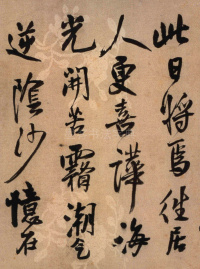 此日將焉往居
人更喜譁海
光開苦霜潮氣
逆陰沙憶在